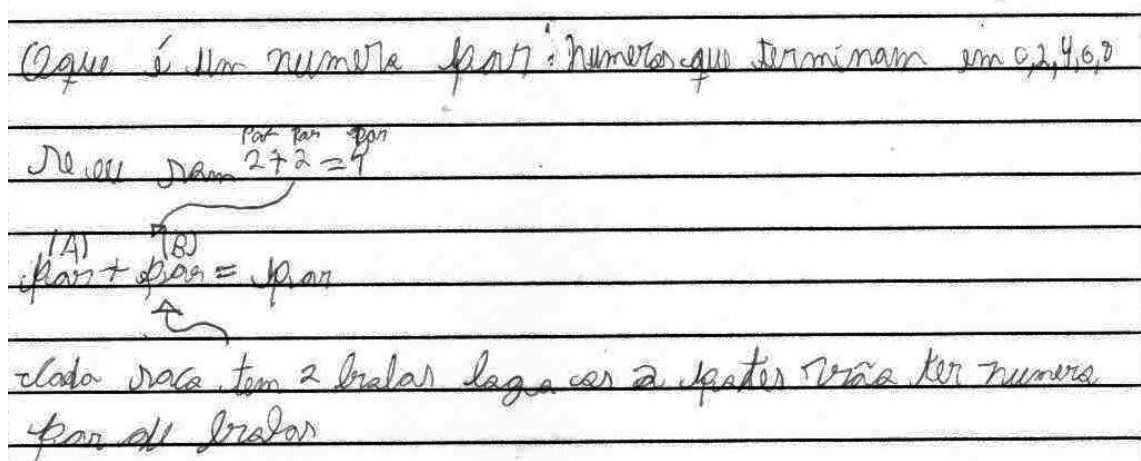 O que é um numero par: numeros que terminam em 0,2,4,6,8
Par Par Par
se eu som 2+2=4
(A) (B)
par + par = par
cada saco tem 2 bolas logo os 2 potes vão ter numero
par de bolas